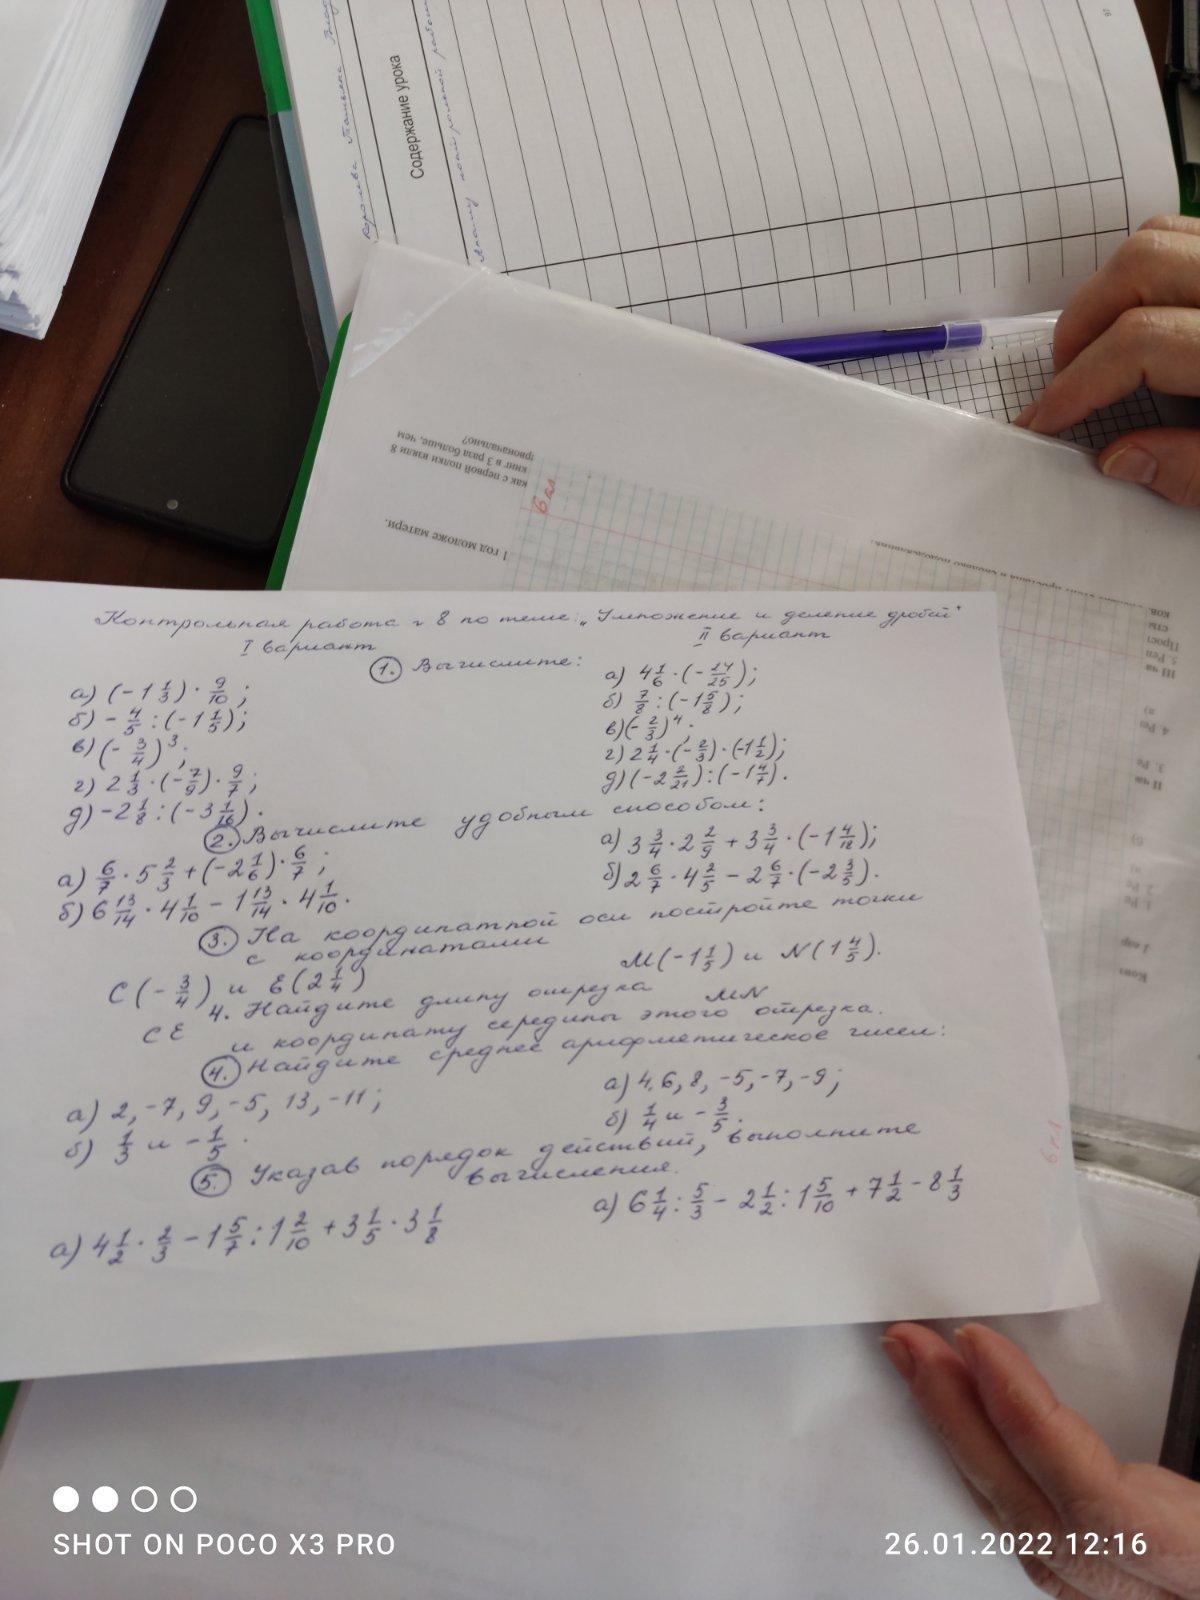 Содержание урока
97
как с первой полки взяли 8
книг в 3 раза больше, чем
рвоначально?
1 год моложе матери.
6 кл
Контрольная работа № 8 по теме: „Умножение и деление дробей"
I вариант
II вариант
1. Вычислите:
а) (-1 1/3) · 9/10 ;
б) - 4/5 : (-1 1/5);
в) (- 3/4)^3;
г) 2 1/3 · (- 7/9) · 9/7 ;
д) -2 1/8 : (-3 1/16) .
а) 4 1/6 · (- 24/25);
б) 7/8 : (-1 5/8);
в) (- 2/3)^4 ;
г) 2 1/4 · (- 2/3) · (-1 1/2);
д) (-2 2/21) : (-1 4/7).
2. Вычислите удобным способом:
а) 6/7 · 5 2/3 + (-2 1/6) · 6/7 ;
б) 6 13/14 · 4 1/10 - 1 13/14 · 4 1/10 .
а) 3 3/4 · 2 2/9 + 3 3/4 · (-1 4/18);
б) 2 6/7 · 4 2/5 - 2 6/7 · (-2 3/5).
3. На координатной оси постройте точки
с координатами
C (- 3/4) и E (2 1/4)
M (-1 1/5) и N (1 4/5).
4. Найдите длину отрезка
CE
MN
и координату середины этого отрезка.
4. Найдите среднее арифметическое чисел:
а) 2, -7, 9, -5, 13, -11 ;
б) 1/3 и - 1/5 .
а) 4, 6, 8, -5, -7, -9 ;
б) 1/4 и - 3/5 .
5. Указав порядок действий, выполните
вычисления.
а) 4 1/2 · 2/3 - 1 5/7 : 1 2/10 + 3 1/5 · 3 1/8
а) 6 1/4 : 5/3 - 2 1/2 : 1 5/10 + 7 1/2 - 8 1/3
6 кл
SHOT ON POCO X3 PRO
26.01.2022 12:16